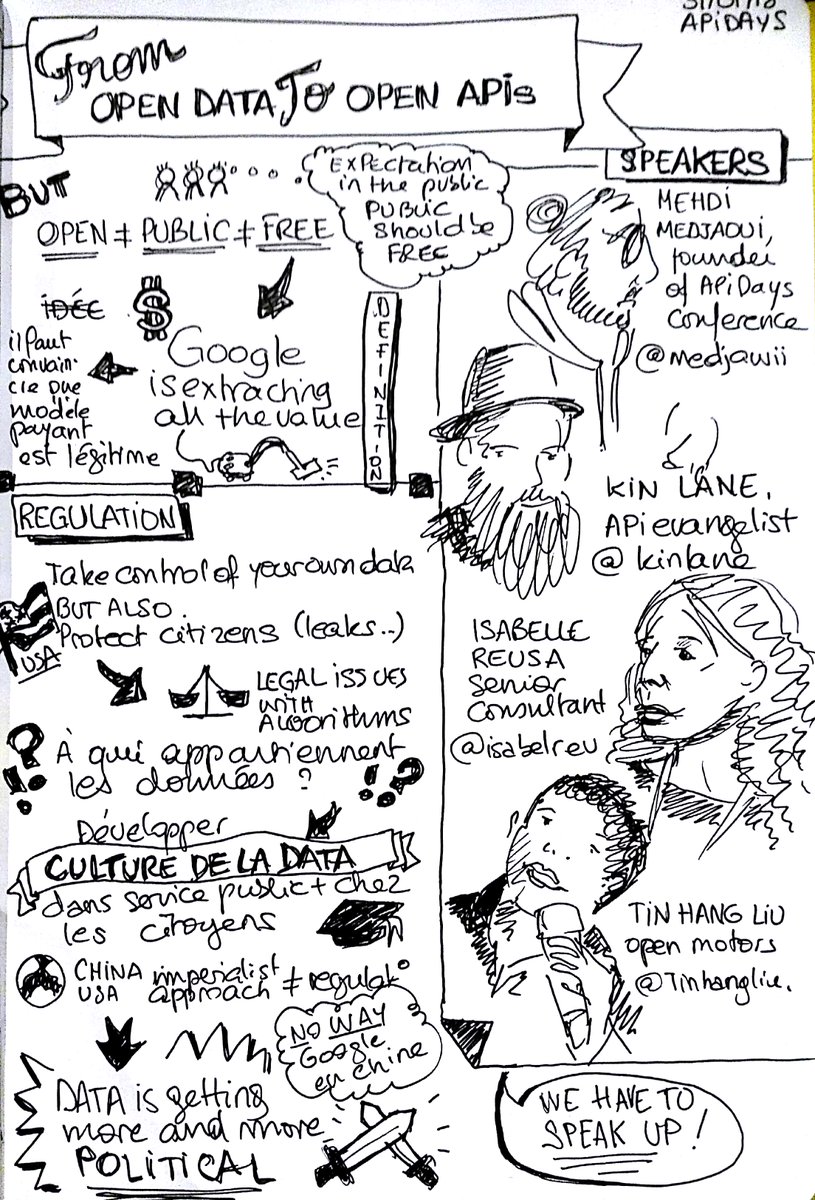 APIDAYS
From
OPEN DATA TO OPEN APIs
BUT
OPEN ≠ PUBLIC ≠ FREE
EXPECTATION
in the public
PUBLIC
should be
FREE
IDÉE
$
il faut
convain-
cre que
modèle
payant
est légitime
Google
is extracting
all the value
DEFINITION
SPEAKERS
MEHDI
MEDJAOUI,
founder
of APIDays
Conference
@medjawii
KIN LANE,
API evangelist
@kinlane
ISABELLE
REUSA
Senior
Consultant
@isabelreu
TIN HANG LIU
open motors
@Tinhangliu.
REGULATION
Take control of your own data
BUT ALSO.
Protect citizens (leaks..)
USA
LEGAL ISSUES
WITH
ALGORITHMS
À qui appartiennent
les données ?
? !
! ?
Développer
CULTURE DE LA DATA
dans service public + chez
les citoyens
CHINA imperialist ≠ regulat°
USA approach
NO WAY
Google
en Chine
DATA is getting
more and more
POLITICAL
WE HAVE TO
SPEAK UP !